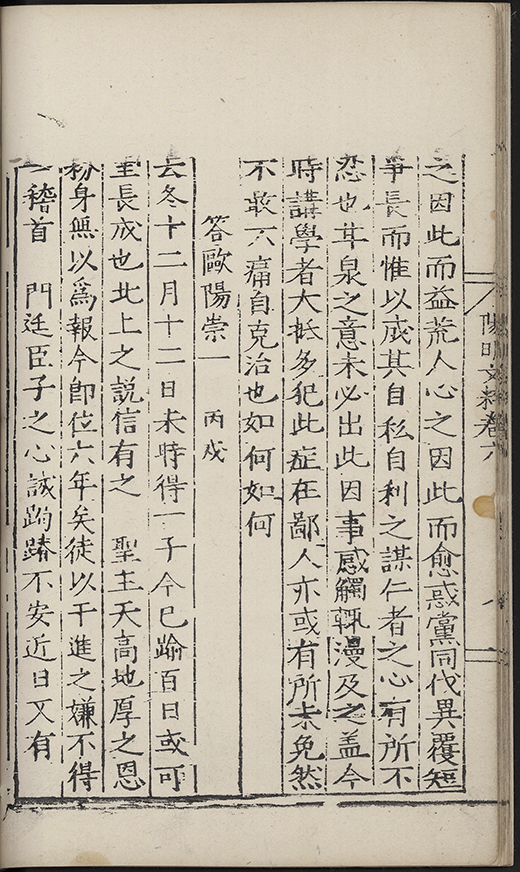 陽明文粹卷六
之因此而益荒人心之因此而愈惑黨同伐異覆短
爭長而惟以成其自私自利之謀仁者之心有所不
忍也甘泉之意未必出此因事感觸輒漫及之盖今
時講學者大抵多犯此症在鄙人亦或有所未免然
不敢不痛自克治也如何如何
答歐陽崇一 丙戌
去冬十二月十二日未時得一子今已踰百日或可
望長成也北上之說信有之 聖主天高地厚之恩
粉身無以爲報今卽位六年矣徒以干進之嫌不得
一稽首 門廷臣子之心誠跼蹐不安近日又有